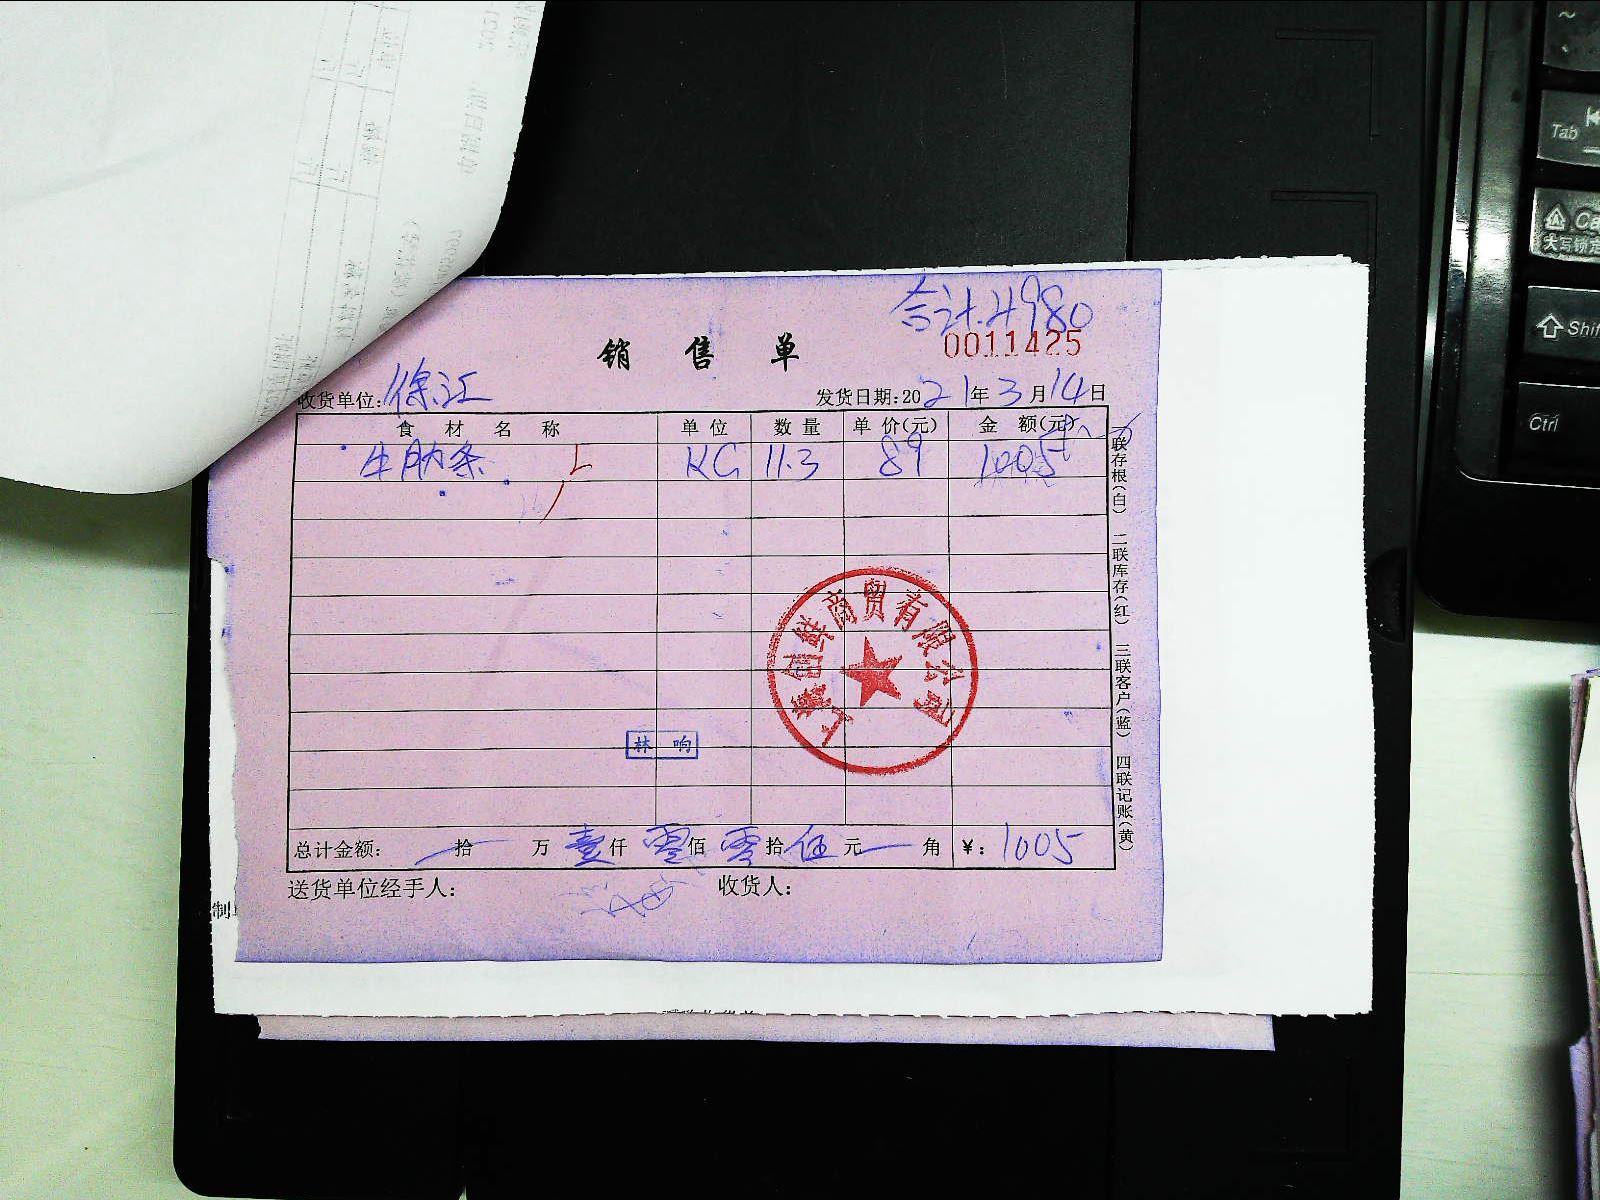 合计.4980
0011425
销售单
收货单位: 徐汇
发货日期:2021年3月14日
食材名称 单位 数量 单价(元) 金额(元)
牛肋条 KG 11.3 89 1005
联存根(白) 二联库存(红) 三联客户(蓝) 四联记账(黄)
创鲜商贸有限公司
林 响
总计金额: 拾 万 壹仟 零佰 零拾 伍元 角 ¥: 1005
送货单位经手人: 收货人:
制
Tab
Ca
大写锁定
Shif
Ctrl